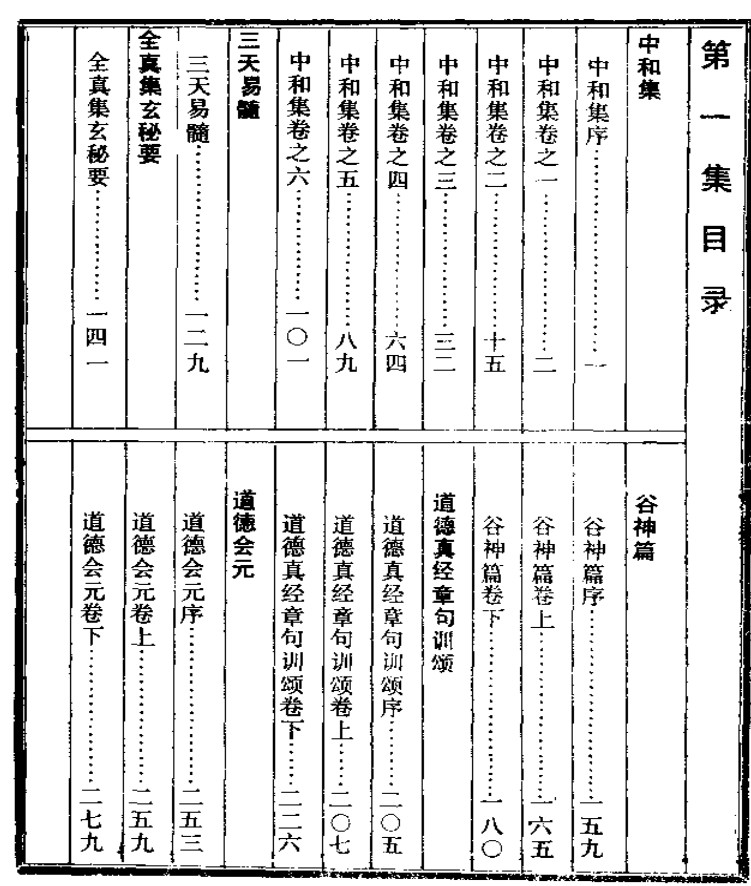 第一集目录
中和集
中和集序……………一
中和集卷之一……………二
中和集卷之二……………十五
中和集卷之三……………三二
中和集卷之四……………六四
中和集卷之五……………八九
中和集卷之六……………一〇一
三天易髓
三天易髓……………一二九
全真集玄秘要
全真集玄秘要……………一四一
谷神篇
谷神篇序……………一五九
谷神篇卷上……………一六五
谷神篇卷下……………一八〇
道德真经章句训颂
道德真经章句训颂序……二〇五
道德真经章句训颂卷上……二〇七
道德真经章句训颂卷下……二二六
道德会元
道德会元序……………二五三
道德会元卷上……………二五九
道德会元卷下……………二七九